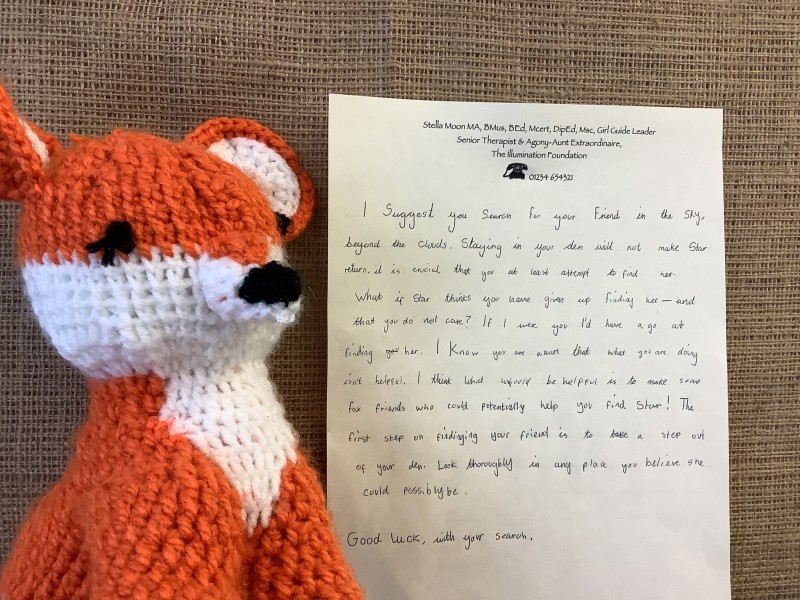 Stella Moon MA, BMus, BEd, Mcert, DipEd, Msc, Girl Guide Leader
Senior Therapist & Agony-Aunt Extraordinaire,
The Illumination Foundation
01234 654321
I Suggest you Search for your Friend in the Sky,
beyond the clouds. Staying in your den will not make Star
return, it is crucial that you at least attempt to find her.
What if Star thinks you have given up finding her — and
that you do not care? If I were you I'd have a go at
finding her. I Know you are aware that what you are doing
isn't helpful. I think what would be helpful is to make some
fox friends who could potentially help you find Star! The
first step on findinging your friend is to take a step out
of your den. Look thoroughly in any place you believe she
could possibly be.
Good Luck, with your search.